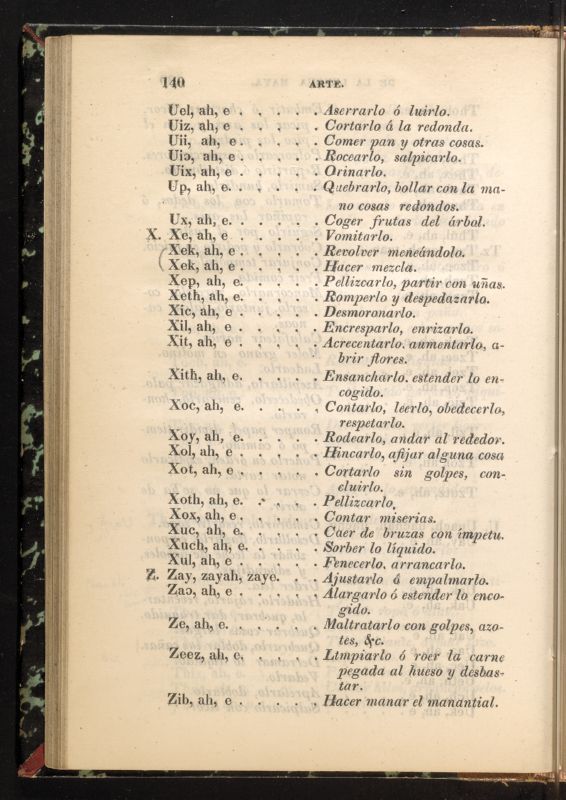 140 ARTE.
Uel, ah, e . . . . . Aserrarlo ó luirlo.
Uiz, ah, e . . . . . Cortarlo á la redonda.
Uii, ah, e . . . . . Comer pan y otras cosas.
Uiɔ, ah, e . . . . . Rocearlo, salpicarlo.
Uix, ah, e . . . . . Orinarlo.
Up, ah, e. . . . . . Quebrarlo, bollar con la ma-
no cosas redondos.
Ux, ah, e. . . . . . Coger frutas del árbol.
X. Xe, ah, e . . . . . Vomitarlo.
Xek, ah, e . . . . . Revolver meneándolo.
(Xek, ah, e . . . . . Hacer mezcla.
Xep, ah, e. . . . . Pellizcarlo, partir con uñas.
Xeth, ah, e. . . . . Romperlo y despedazarlo.
Xic, ah, e . . . . . Desmoronarlo.
Xil, ah, e . . . . . Encresparlo, enrizarlo.
Xit, ah, e . . . . . Acrecentarlo. aumentarlo, a-
brir flores.
Xith, ah, e. . . . . Ensancharlo. estender lo en-
cogido.
Xoc, ah, e. . . . . Contarlo, leerlo, obedecerlo,
respetarlo.
Xoy, ah, e. . . . . Rodearlo, andar al rededor.
Xol, ah, e . . . . . Hincarlo, afijar alguna cosa
Xot, ah, e . . . . . Cortarlo sin golpes, con-
cluirlo.
Xoth, ah, e. . . . . Pellizcarlo,
Xox, ah, e . . . . . Contar miserias.
Xuc, ah, e. . . . . Caer de bruzas con ímpetu.
Xuch, ah, e. . . . . Sorber lo líquido.
Xul, ah, e . . . . . Fenecerlo, arrancarlo.
Z. Zay, zayah, zaye. . . Ajustarlo á empalmarlo.
Zaɔ, ah, e . . . . . Alargarlo ó estender lo enco-
gido.
Ze, ah, e. . . . . . Maltratarlo con golpes, azo-
tes, &c.
Zeez, ah, e. . . . . Ltmpiarlo ó roer la carne
pegada al hueso y desbas-
tar.
Zib, ah, e . . . . . Hacer manar el manantial.